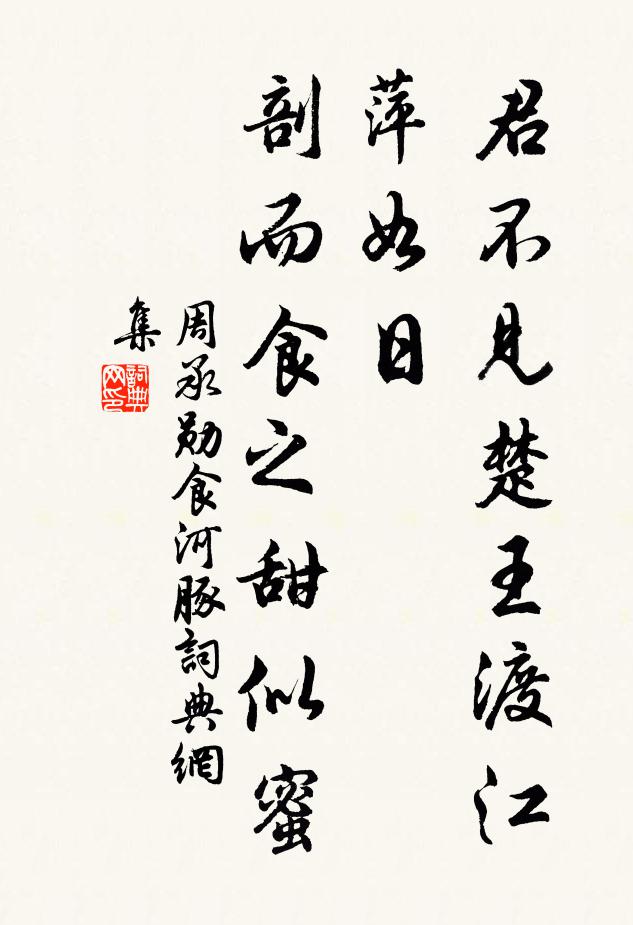 君不見楚王渡江
萍如日
剖而食之甜似蜜
周承勋食河豚詞典網
集
詞典
网印